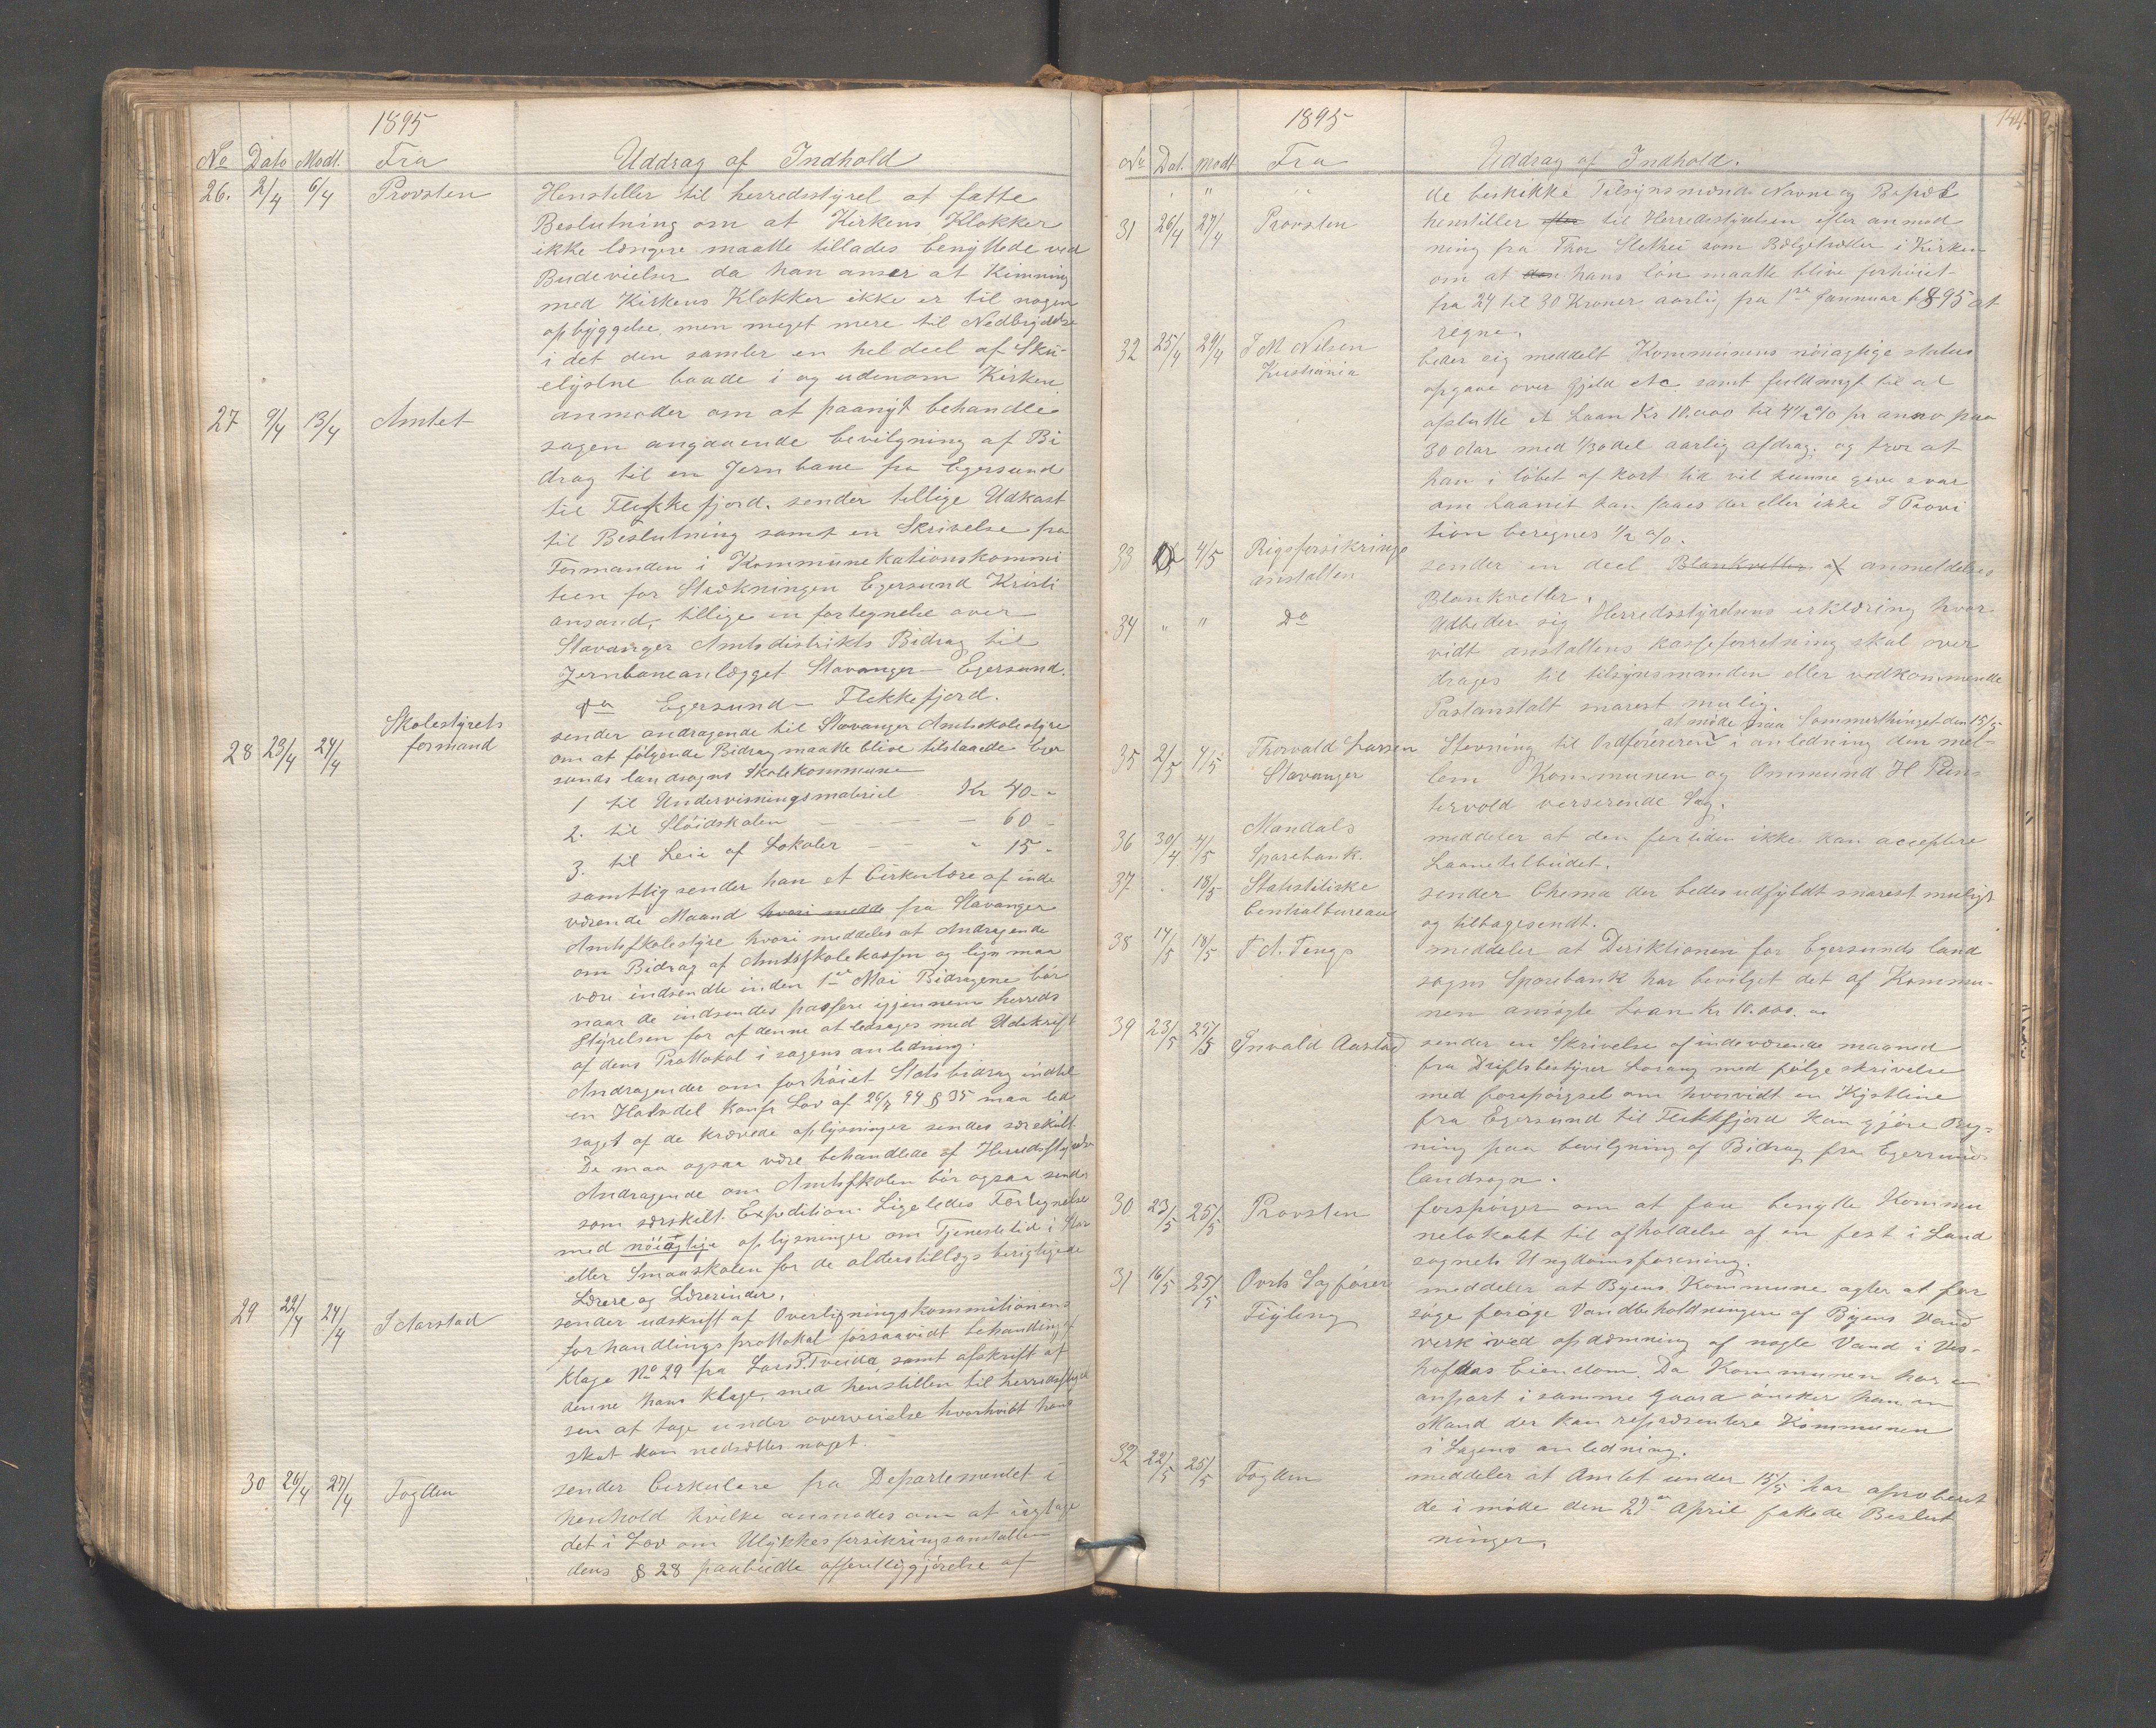 1895
No Dato Modt. Fra Uddrag af Indhold
26. 2/4 6/4 Provsten Henstiller til herredsstyret at fatte
Beslutning om at Kirkens Klokker
ikke længere maatte tillades benyttede ved
Budevielser da han anser at Kimning
med Kirkens Klokker ikke er til nogen
opbyggelse, men meget mere til Nedbrydelse
i det den samler en hel deel af Sku-
elystne baade i og udenom Kirken
27 9/4 13/4 Amtet anmoder om at paanyt behandle
sagen angaaende bevilgning af Bi
drag til en Jernbane fra Egersund
til Flekkefjord. sender tillige Udkast
til Beslutning samt en Skrivelse fra
Formanden i Kommunekationskommi
tien for Strækningen Egersund Kristi
ansand, tillige en fortegnelse over
Stavanger Amtsdistrikts Bidrag til
Jernbaneanlægget Stavanger - Egersund.
do Egersund - Flekkefjord.
28 23/4 24/4 Skolestyrets formand sender andragende til Stavanger Amtsskolestyre
om at følgende Bidrag maatte blive tilstaaede Eger
sunds landsogns skolekommune
1 til Undervisningsmateriel Kr 40 - "
2. til Sløidskolen - - - - 60 -
3. til Leie af Lokaler - - " 15 -
samtlig sender han et Cirkulære af inde
værende Maaned hvori medde fra Stavanger
Amtsskolestyre hvori meddeles at Andragende
om Bidrag af Amtsskolekassen og lign maa
være indsendte inden 1ste Mai Bidragene bør
naar de indsendes passere igjennem herreds
Styrelsen for af denne at ledsages med Udskrift
af dens Prottokol i sagens anledning.
Andragender om forhøiet Statsbidrag indtil
en Halvdel konfr Lov af 26/6 94 § 35 maa led
saget af de krævede oplysninger sendes særskilt.
De maa ogsaa være behandlede af Herredsstyrelsen
Andragende om Amtsskolen bør ogsaa sendes
som særskilt Expedition. Ligeledes Fortegnelse
med nöiagtige oplysninger om Tjenestetid i Stor
eller Smaaskolen for de alderstillægs berigtigede
Lærere og Lærerinder.
29 22/4 24/4 I Aarstad sender udskrift af Overligningskommitionens
forhandlingsprottokol forsaavidt behandling af
Klage No 29 fra Lars P. Tveida, samt afskrift af
denne hans Klage, med henstillen til herredsstyrel
sen at tage under overveielse hvorhvidt hans
skat kan nedsættes noget.
30 26/4 27/4 Fogden sender Cirkulere fra Departementet i
henhold hvilke anmodes om at iagtage
det i Lov om Ulykkesforsikringsanstalten
dens § 28 paabudte offentliggjørelse af
144
1895
No Dat. Modt Fra Uddrag af Indhold.
" " " de beskikke Tilsynsmænds Navne og Bopæl
31 26/4 27/4 Provsten henstiller til Herredsstyrelsen efter anmod
ning fra Thor Slethei som Bælgetræder i Kirken
om at den hans løn maatte blive forhøiet
fra 24 til 30 Kroner aarlig fra 1ste Januar 1895 at
regne.
32 25/4 29/4 I M Nilsen Kristiania beder sig meddelt Kommunens nöiagtige status
opgave over gjeld etc samt fuldmagt til at
afslutte et Laan Kr 10.000 til 4 1/2 % pr anno paa
30 Aar med 1/30 del aarlig afdrag. og tror at
han i løbet af kort tid vil kunne give svar
om Laanet kan faaes der eller ikke I Provi
tion beregnes 1/2 %.
33 4/5 Rigsforsikrings anstalten sender en deel Blanketter af anmeldelses
Blanketter.
34 " " Do Udbeder sig Herredsstyrelsens erklæring hvor
vidt anstaltens kasseforretning skal over
drages til tilsynsmanden eller vedkommende
Postanstalt snarest mulig.
at møde paa Sommerthinget den 15/5
35 2/5 4/5 Thorvald Larsen Stavanger Stevning til Ordføreren i anledning den mel-
lem Kommunen og Ommund H Pun-
tervold verserende Sag.
36 30/4 4/5 Mandals Sparebank. meddeler at den fortiden ikke kan acceptere
Laanetilbudet.
37 . 18/5 Statistiske Centralbureau sender Chema der bedes udfyldt snarest muligt
og tilbagesendt.
38 14/5 18/5 T. A. Tengs meddeler at Deriktionen for Egersunds land
sogns Sparebank har bevilget det af Kommu-
nen ansøgte Laan Kr 10.000.00
39 23/5 25/5 Ynvald Aarstad sender en Skrivelse af indeværende maaned
fra Driftsbestyrer Lorang med følgeskrivelse
med forespørgsel om hvorvidt en Kystlinie
fra Egersund til Flekkfjord kan gjøre Reg-
ning paa bevilgning af Bidrag fra Egersunds
landsogn.
30 23/5 25/5 Provsten forspørger om at faa benytte Kommu
nelokalet til afholdelse af en fest i Land
sognets Ungdomsforening.
31 16/5 25/5 Ovrts Sagfører Fëyling meddeler at Byens Kommune agter at for
søge forøge Vandbeholdningen af Byens Vand
verk ived opdæmning af nogle Vand i Hus-
Eiendom. Da Kommunen har en
anpart i samme Gaard ønsker han en
Mand der kan repræsentere Kommunen
i Sagens anledning.
32 22/5 25/5 Fogden meddeler at Amtet under 15/5 har aproberet
de i møde den 27de April fattede Beslut
ninger.